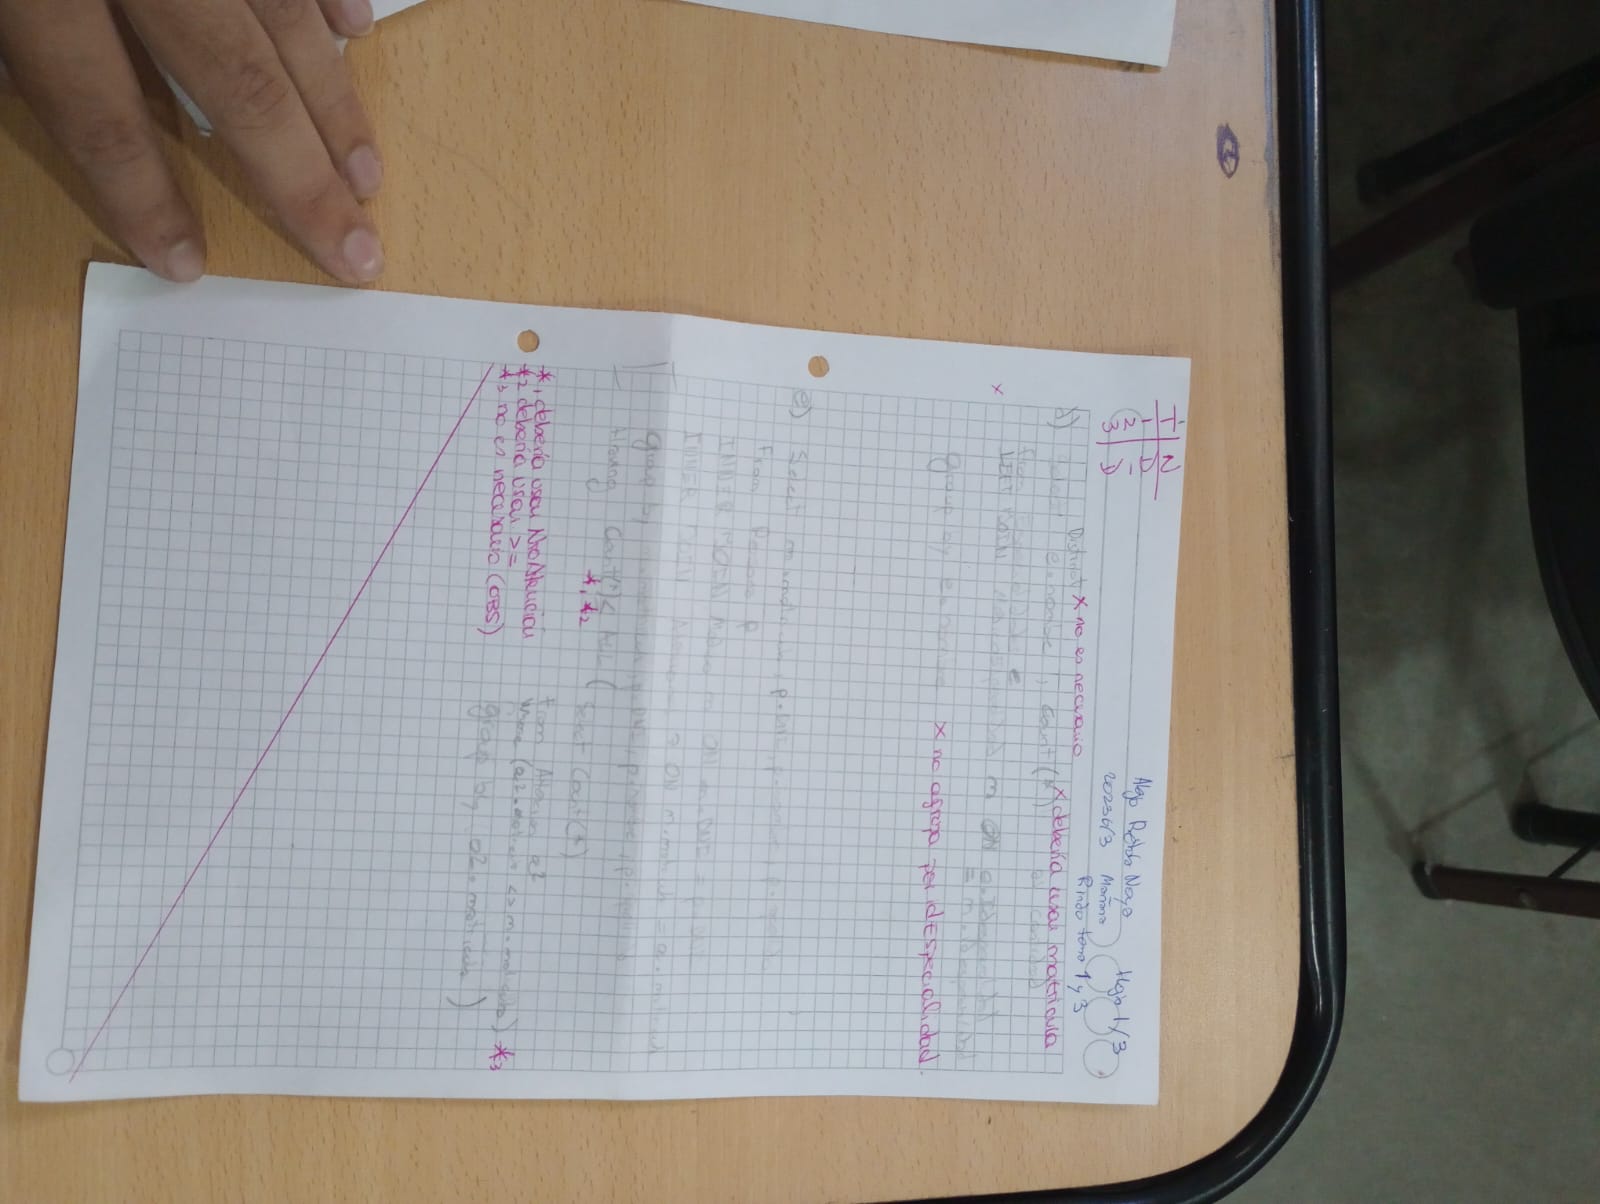 T | N
1 | D
2 | -
3 | D
Hoja 1/3
202361/3 Mañana
Rindo tema 1 y 3
Distinct x no es necesario
d) Select e.nombre, Count(*) x debería usar matricula
From Especialidades e
x LEFT JOIN m ON
group by e.nombre x no agrupa por idEspecialidad.
e) Select m.matricula, p.DNI, p.nombre, p.apellido
From Persona p
INNER JOIN Medico m ON m.DNI = p.DNI
INNER JOIN Atencion a ON m.matricula = a.matricula
group by m.matricula, p.DNI, p.nombre, p.apellido
Having Count(*) < ALL (
*1 *2
Select Count(*)
from Atencion a2
where (a2.matricula <> m.matricula) *3
group by a2.matricula )
*1 debería usar NroAtencion
*2 debería usar >=
*3 no es necesario (OBS)